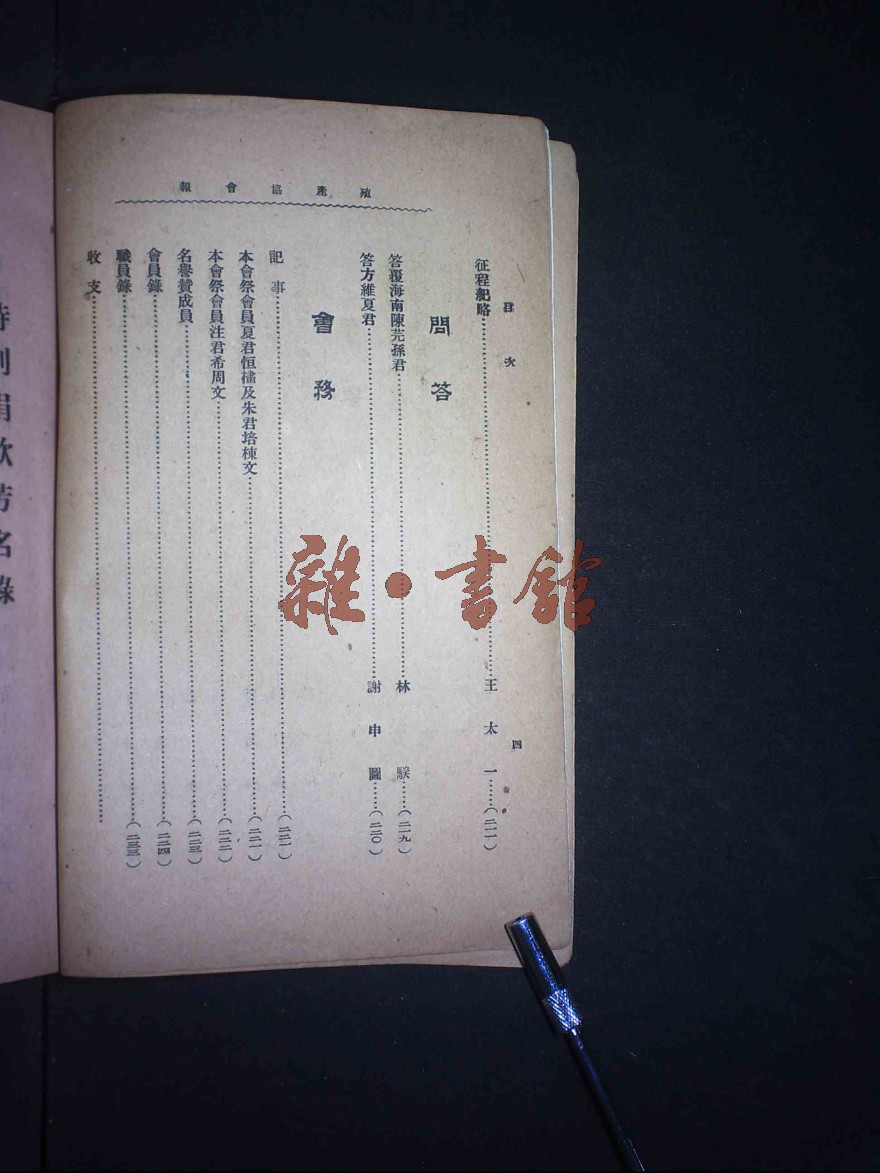 殖產協會報
目次
四
征程紀略 王太一 (二一一)
問答
答覆海南陳芫孫君 林騤 (二一九)
答方維夏君 謝申圖 (二二〇)
會務
記事 (二二一)
本會祭會員夏君恒橚及朱君培棟文 (二二一)
本會祭會員注君希周文 (二二二)
名譽贊成員 (二二三)
會員錄 (二二四)
職員錄 (二三三)
收支
特別捐款芳名錄
雜·書館